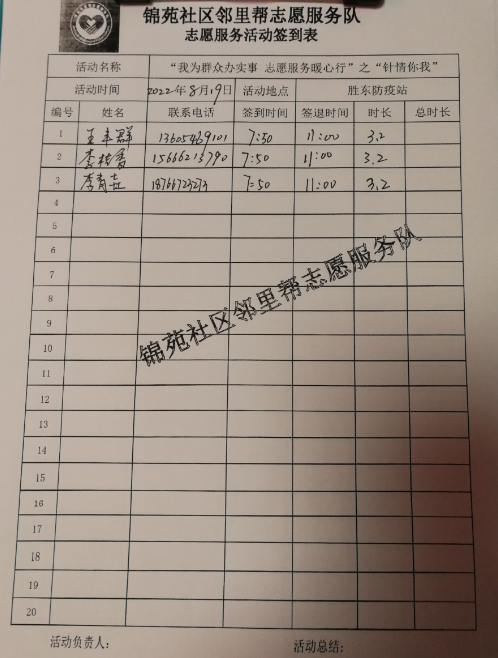 锦苑社区邻里帮志愿服务队
志愿服务活动签到表
活动名称 “我为群众办实事 志愿服务暖心行”之“针情你我”
活动时间 2022年8月19日 活动地点 胜东防疫站
编号 姓名 联系电话 签到时间 签退时间 时长 总时长
1 王丰群 13605469101 7:50 11:00 3.2
2 李桂香 15666213790 7:50 11:00 3.2
3 李青 18766723273 7:50 11:00 3.2
4
5
6
7
8
9
10
11
12
13
14
15
16
17
18
19
20
锦苑社区邻里帮志愿服务队
活动负责人: 活动总结: